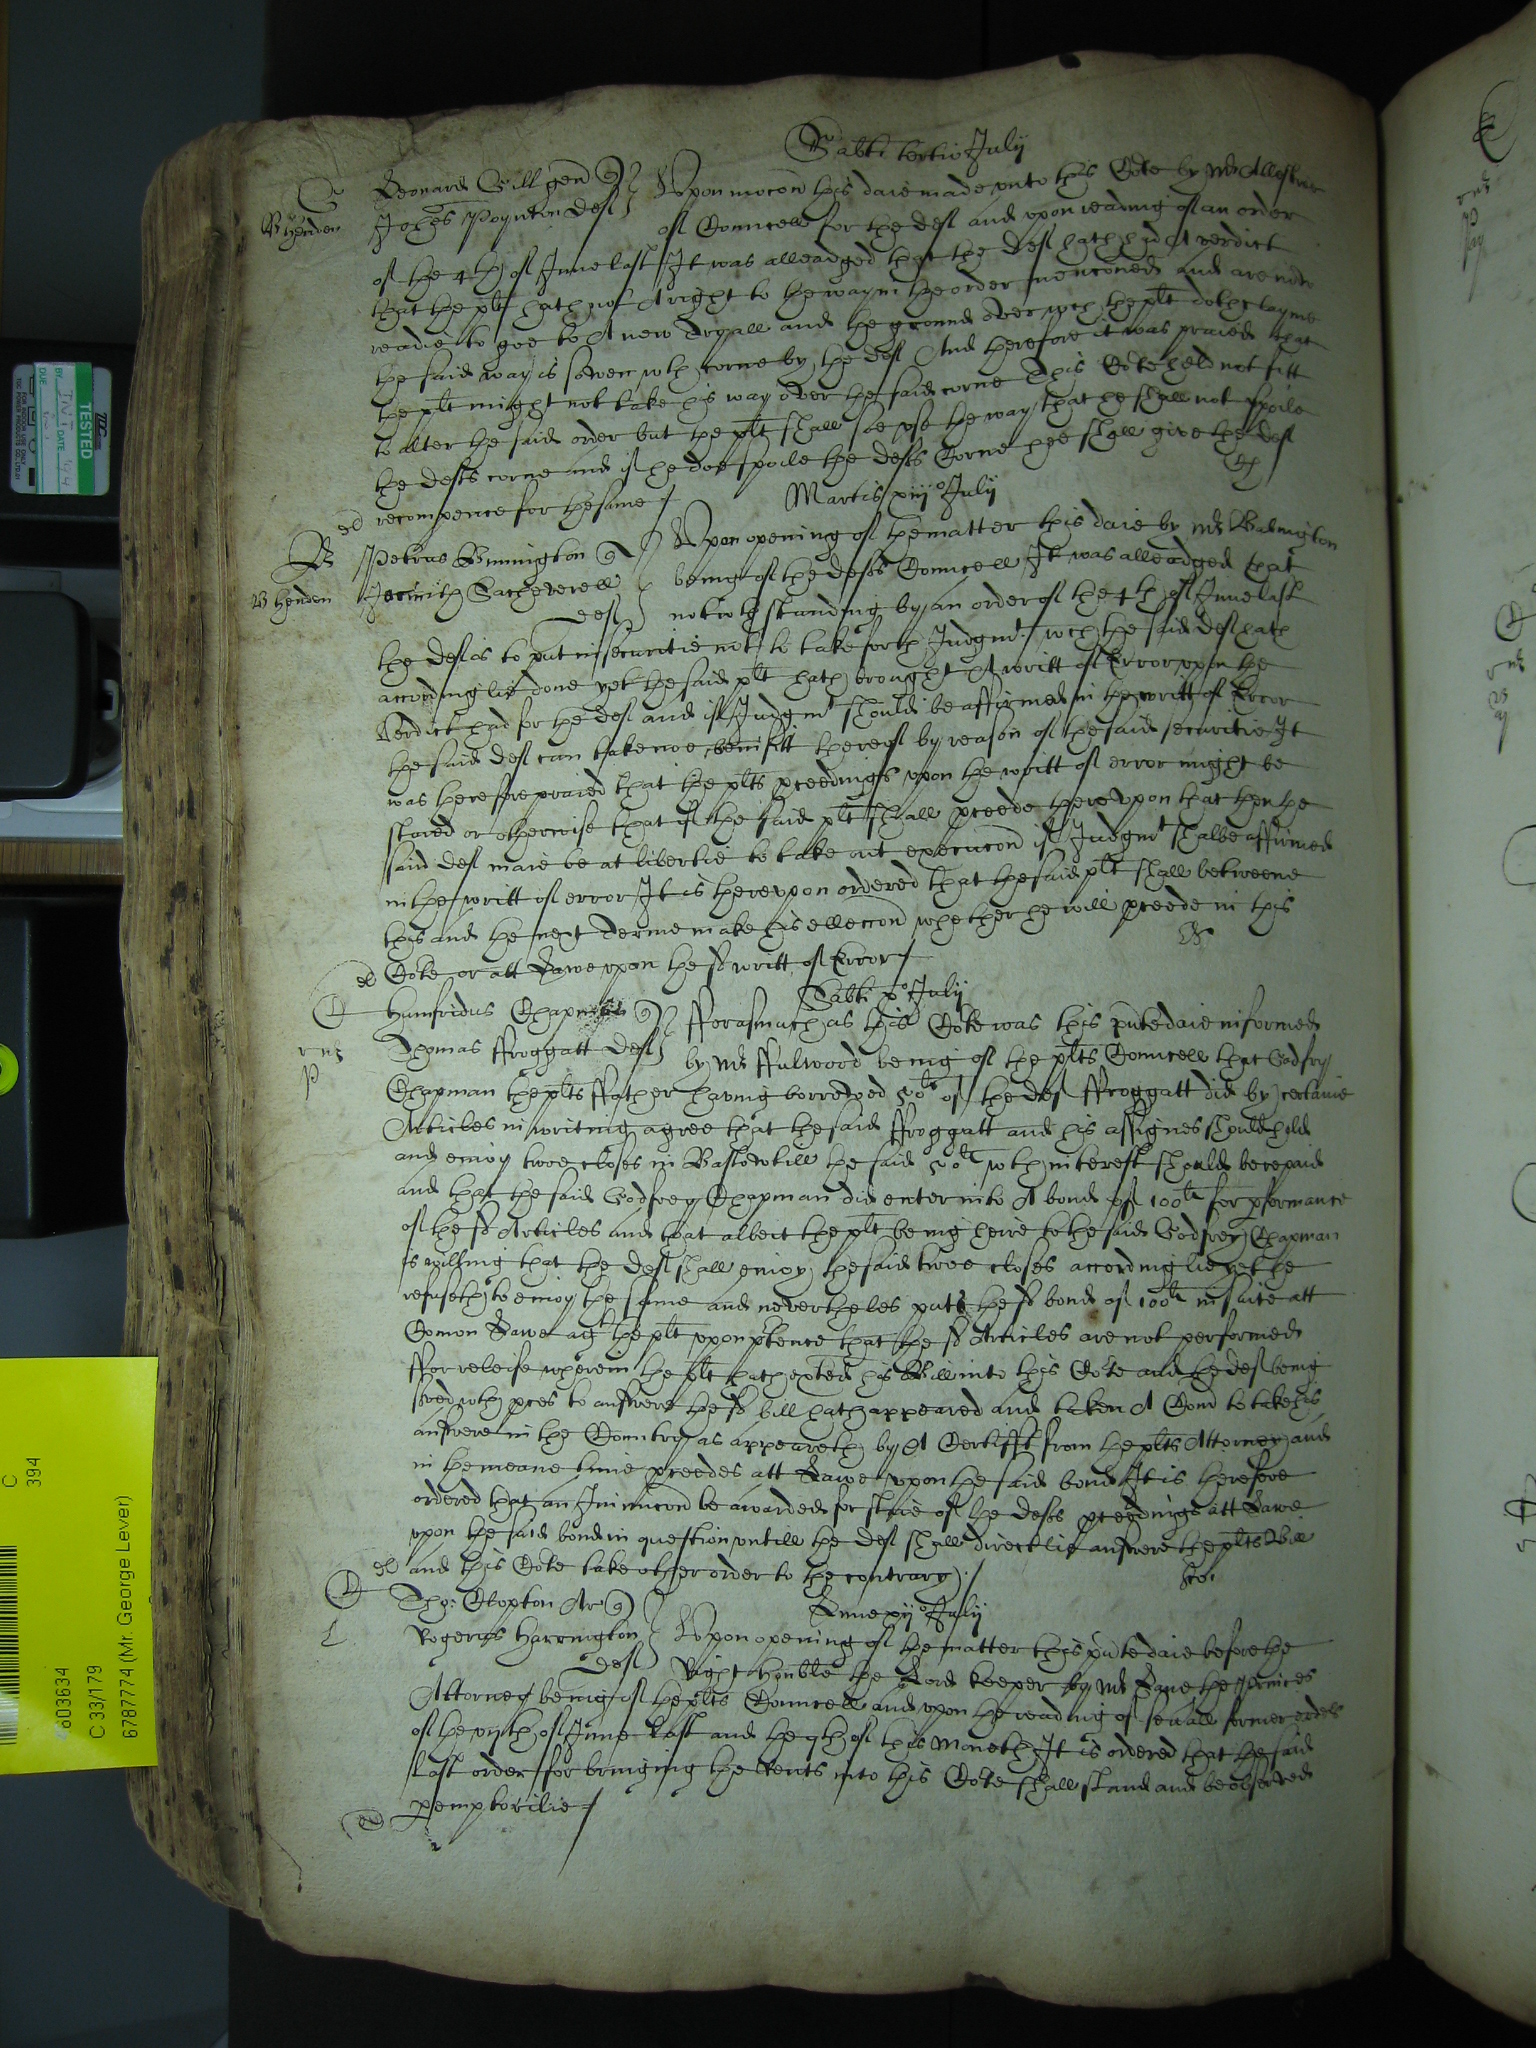 Sabti tertio July
Leonard Gill gen q
Johes Poynton def
B henden
Upon mocon this daie made unto this Cote by Mr Allestree
of Councell for the def and upon reading of an order
of the 4th of June last It was alleadged that the def hath had A verdict
that the plt hath not A right to the way in the order menconed and are now
readie to goe to A new Tryall and the ground over wch the plt doth clayme
the said way is sowen wth corne by the def And therefore it was praied that
the plt might not take his way over the said corne This Cote held not fitt
to alter the said order but the plt shall soe use the way that he shall not spoile
the defts corne and if he doe spoile the defts Corne hee shall give the def
recompence for the same
Martis xiijo July
B
Petrus Bunnington q
Jacinth Sacheverell
def
B henden
Upon opening of the matter this daie by Mr Babington
being of the defts Councell It was alleadged that
notwthstanding by an order of the 4th of June last
the def is to put in securitie not to take forth Judgmt wch the said def hath
accordinglie done yet the said plt hath brought A writt of Error upon the
Verdict had for the def and if Judgmt should be affirmed in the writt of Error
the said def can take noe benifitt thereof by reason of the said securitie It
was therefore praied that the plts pceedings upon the writt of error might be
staied or otherwise that if the said plt shall pceede thereupon that then the
said def maie be at libertie to take out execucon if Judgmt shalbe affirmed
in the writt of error It is thereupon ordered that the said plt shall betweene
this and the next Terme make his elleccon whether he will pceede in this
Cote or att Lawe upon the sd writt of Error
Sabti xo July
Humfridus Chapman q
Thomas Froggatt def
rnz
p
fforasmuch as this Cote was this pnte daie informed
by Mr ffulwood being of the plts Councell that Godfry
Chapman the plts ffather having borrowed 50li of the def ffroggatt did by certaine
Articles in writing agree that the said ffroggatt and his assignes should hold
and enioy twoe closes in Baslow till the said 50li wth interest should be repaid
and that the said Godfrey Chapman did enter into A bond of 100li for pformance
of the sd Articles and that albeit the plt being heire to the said Godfrey Chapman
is willing that the def shall enioy the said twoe closes accordinglie yet he
refuseth to enioy the same and nevertheles putts the sd bond of 100li in suite att
Comon Lawe agt the plt upon ptence that the sd Articles are not performed
ffor releise wherein the plt hath exted his Bill into this Cote and the def being
served wth pces to answere the sd bill hath appeared and taken A Com to take his
answere in the Countrey as appeareth by A Certifft from the plts Attorney and
in the meane time pceedes att Lawe upon the said bond It is therefore
ordered that an Iniunccon be awarded for staie of the defts pceedings att Lawe
upon the said bond in question untill the def shall directlie answere the plts Bill
and this Cote take other order to the contrary
Lune xijo July
Tho: Clopton Ar q
Rogerus Harrington
def
L
Upon opening of the matter this pnte daie before the
Right Honble the Lord Keeper by Mr Lane the princes
Attorney being of the plts Councell and upon the reading of sevall former orders
of the viith of June last and the 9th of this moneth It is ordered that the said
last order for bringing the Rents into this Cote shall stand and be observed
pemptorilie
TESTED
BY
DATE
DUE
C
394
603634
C 33/179
6787774 (Mr. George Lever)